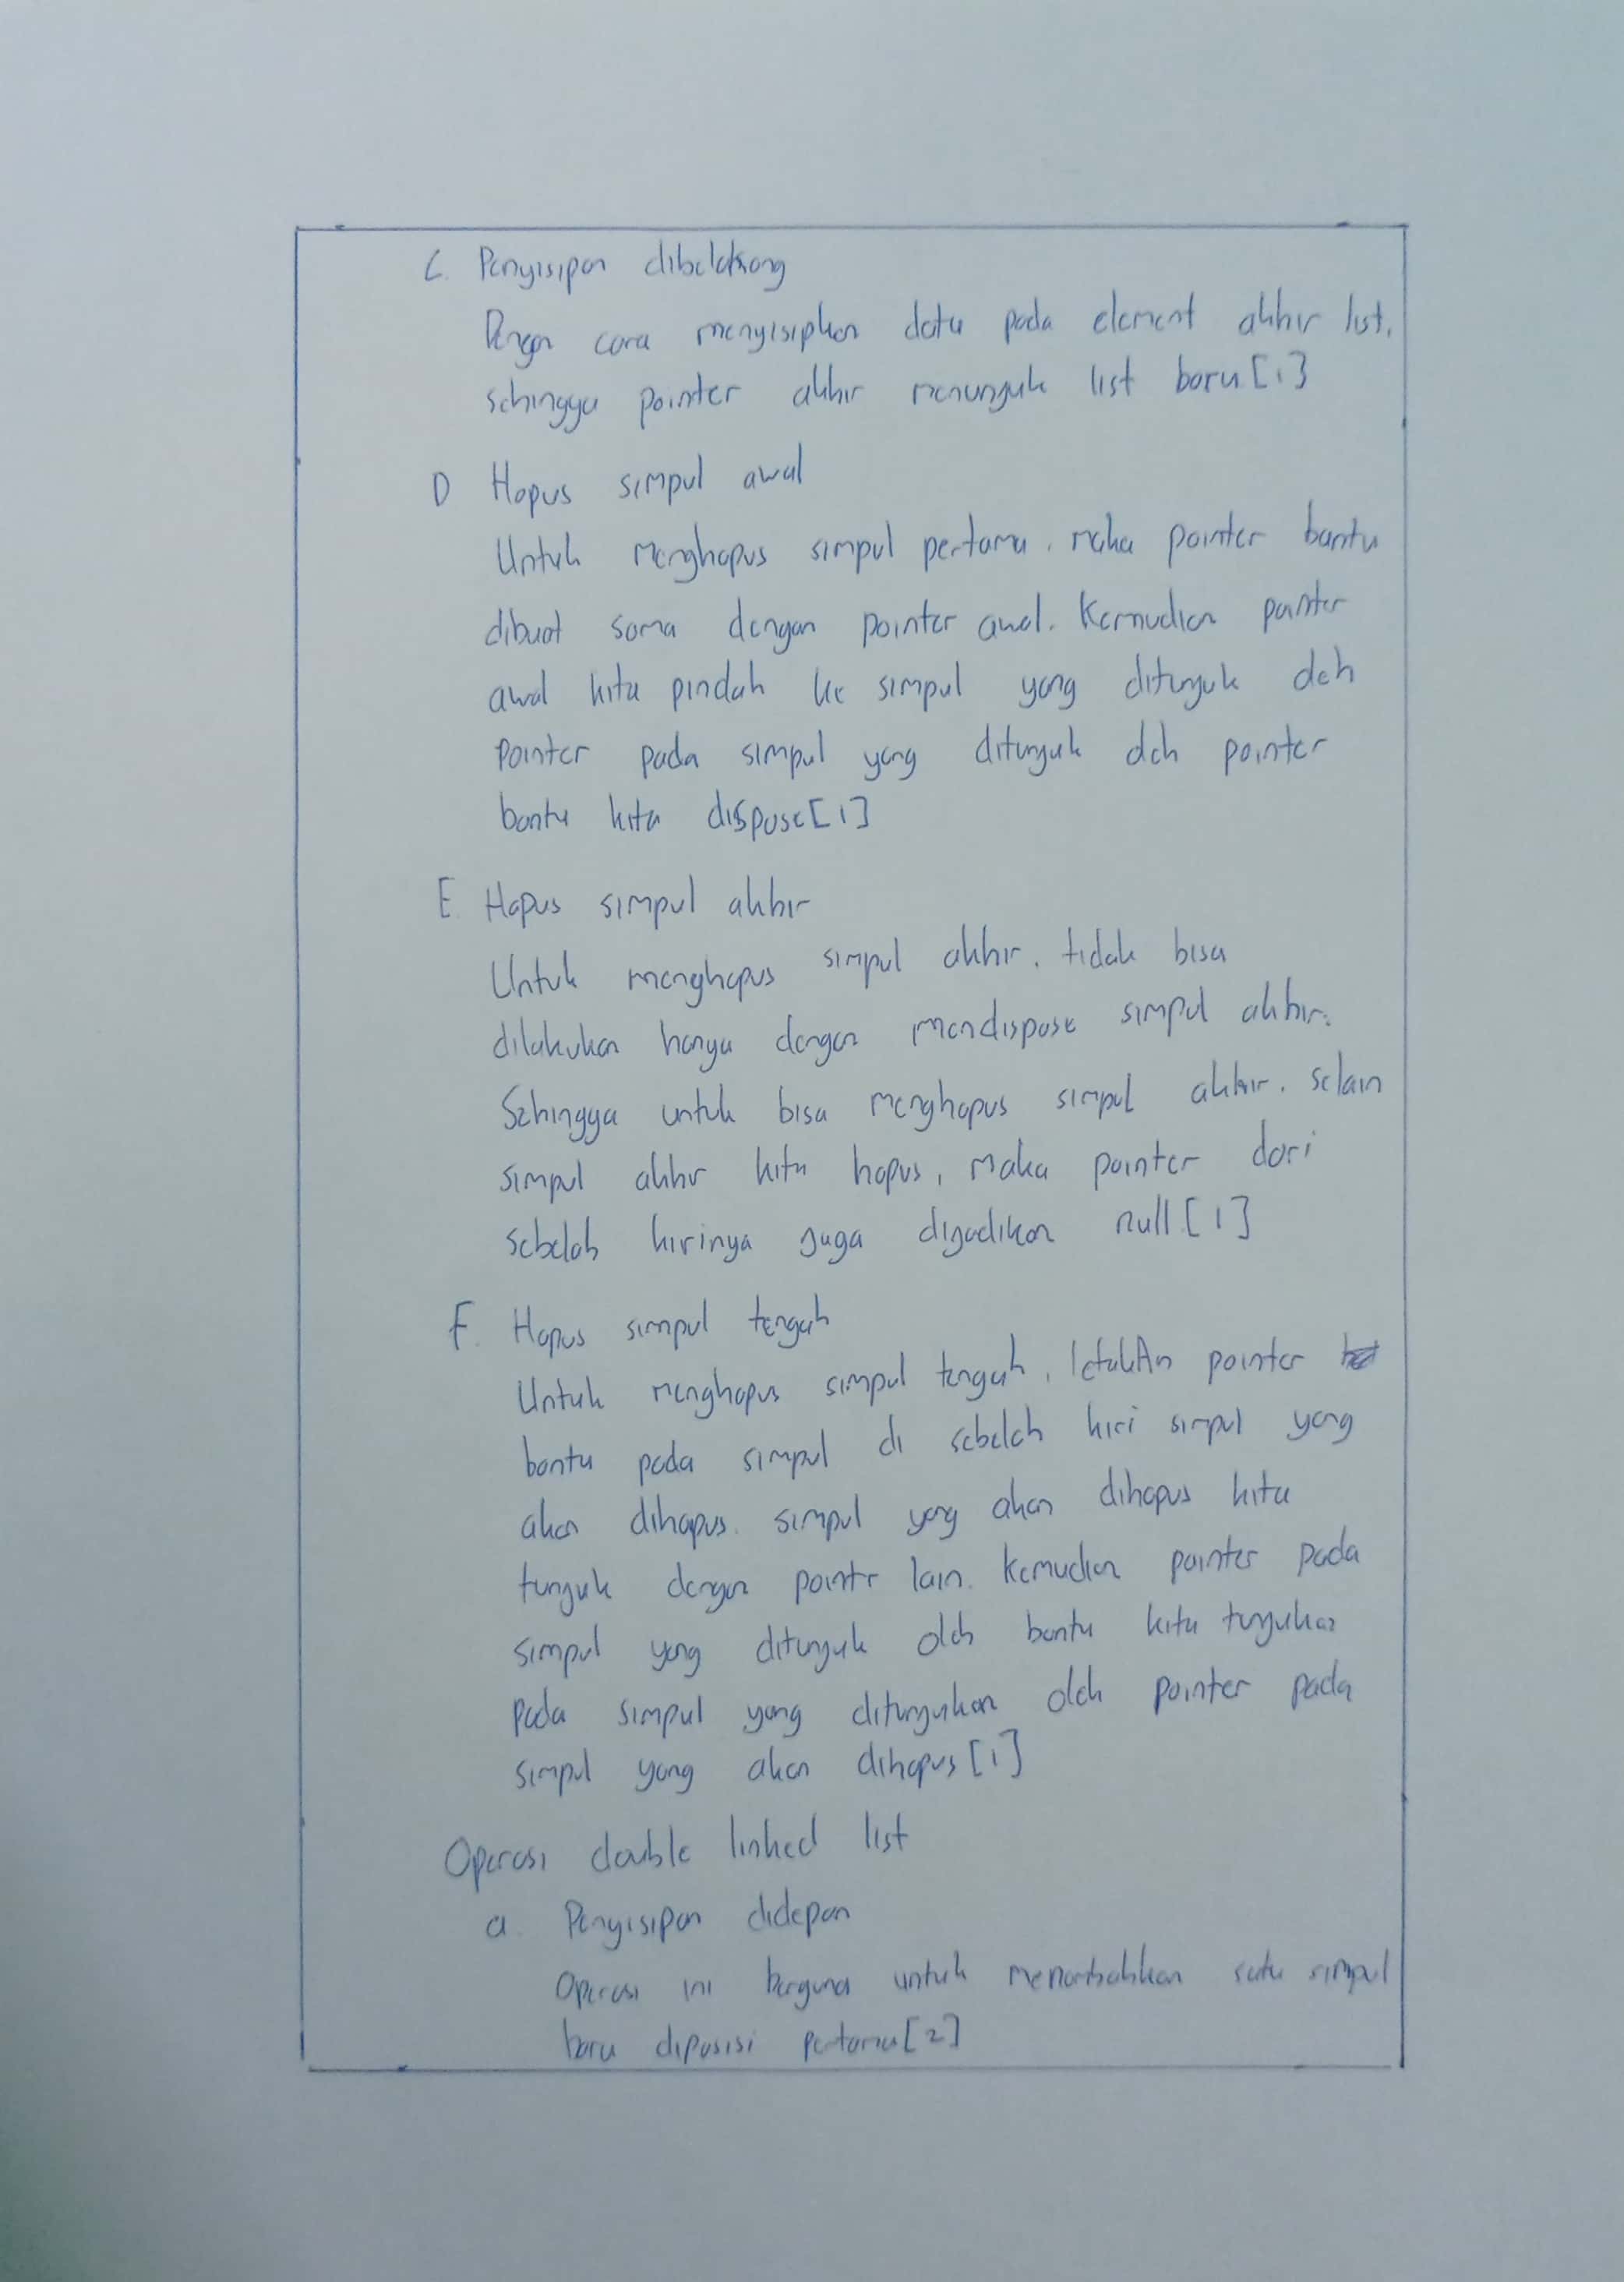 C. Penyisipan dibelakang
Dengan cara menyisipkan data pada element akhir list.
sehingga pointer akhir menunjuk list baru [1]
D Hapus simpul awal
Untuk menghapus simpul pertama, maka pointer bantu
dibuat sama dengan pointer awal. Kemudian pointer
awal kita pindah ke simpul yang ditunjuk oleh
Pointer pada simpul yang ditunjuk oleh pointer
bantu kita dispose [1]
E. Hapus simpul akhir
Untuk menghapus simpul akhir, tidak bisa
dilakukan hanya dengan mendispose simpul akhir.
Sehingga untuk bisa menghapus simpul akhir, selain
simpul akhir kita hapus, maka pointer dari
sebelah kirinya juga dijadikan null [1]
F. Hapus simpul tengah
Untuk menghapus simpul tengah, letakAn pointer
bantu pada simpul di sebelah kiri simpul yang
akan dihapus. simpul yang akan dihapus kita
tunjuk dengan pointr lain. Kemudian pointer pada
simpul yang ditunjuk oleh bantu kita tunjukan
pada simpul yang ditunjukan oleh pointer pada
simpul yang akan dihapus [1]
Operasi double linked list
a. Penyisipan didepan
Operasi ini berguna untuk menambahkan satu simpul
baru diposisi pertama [2]